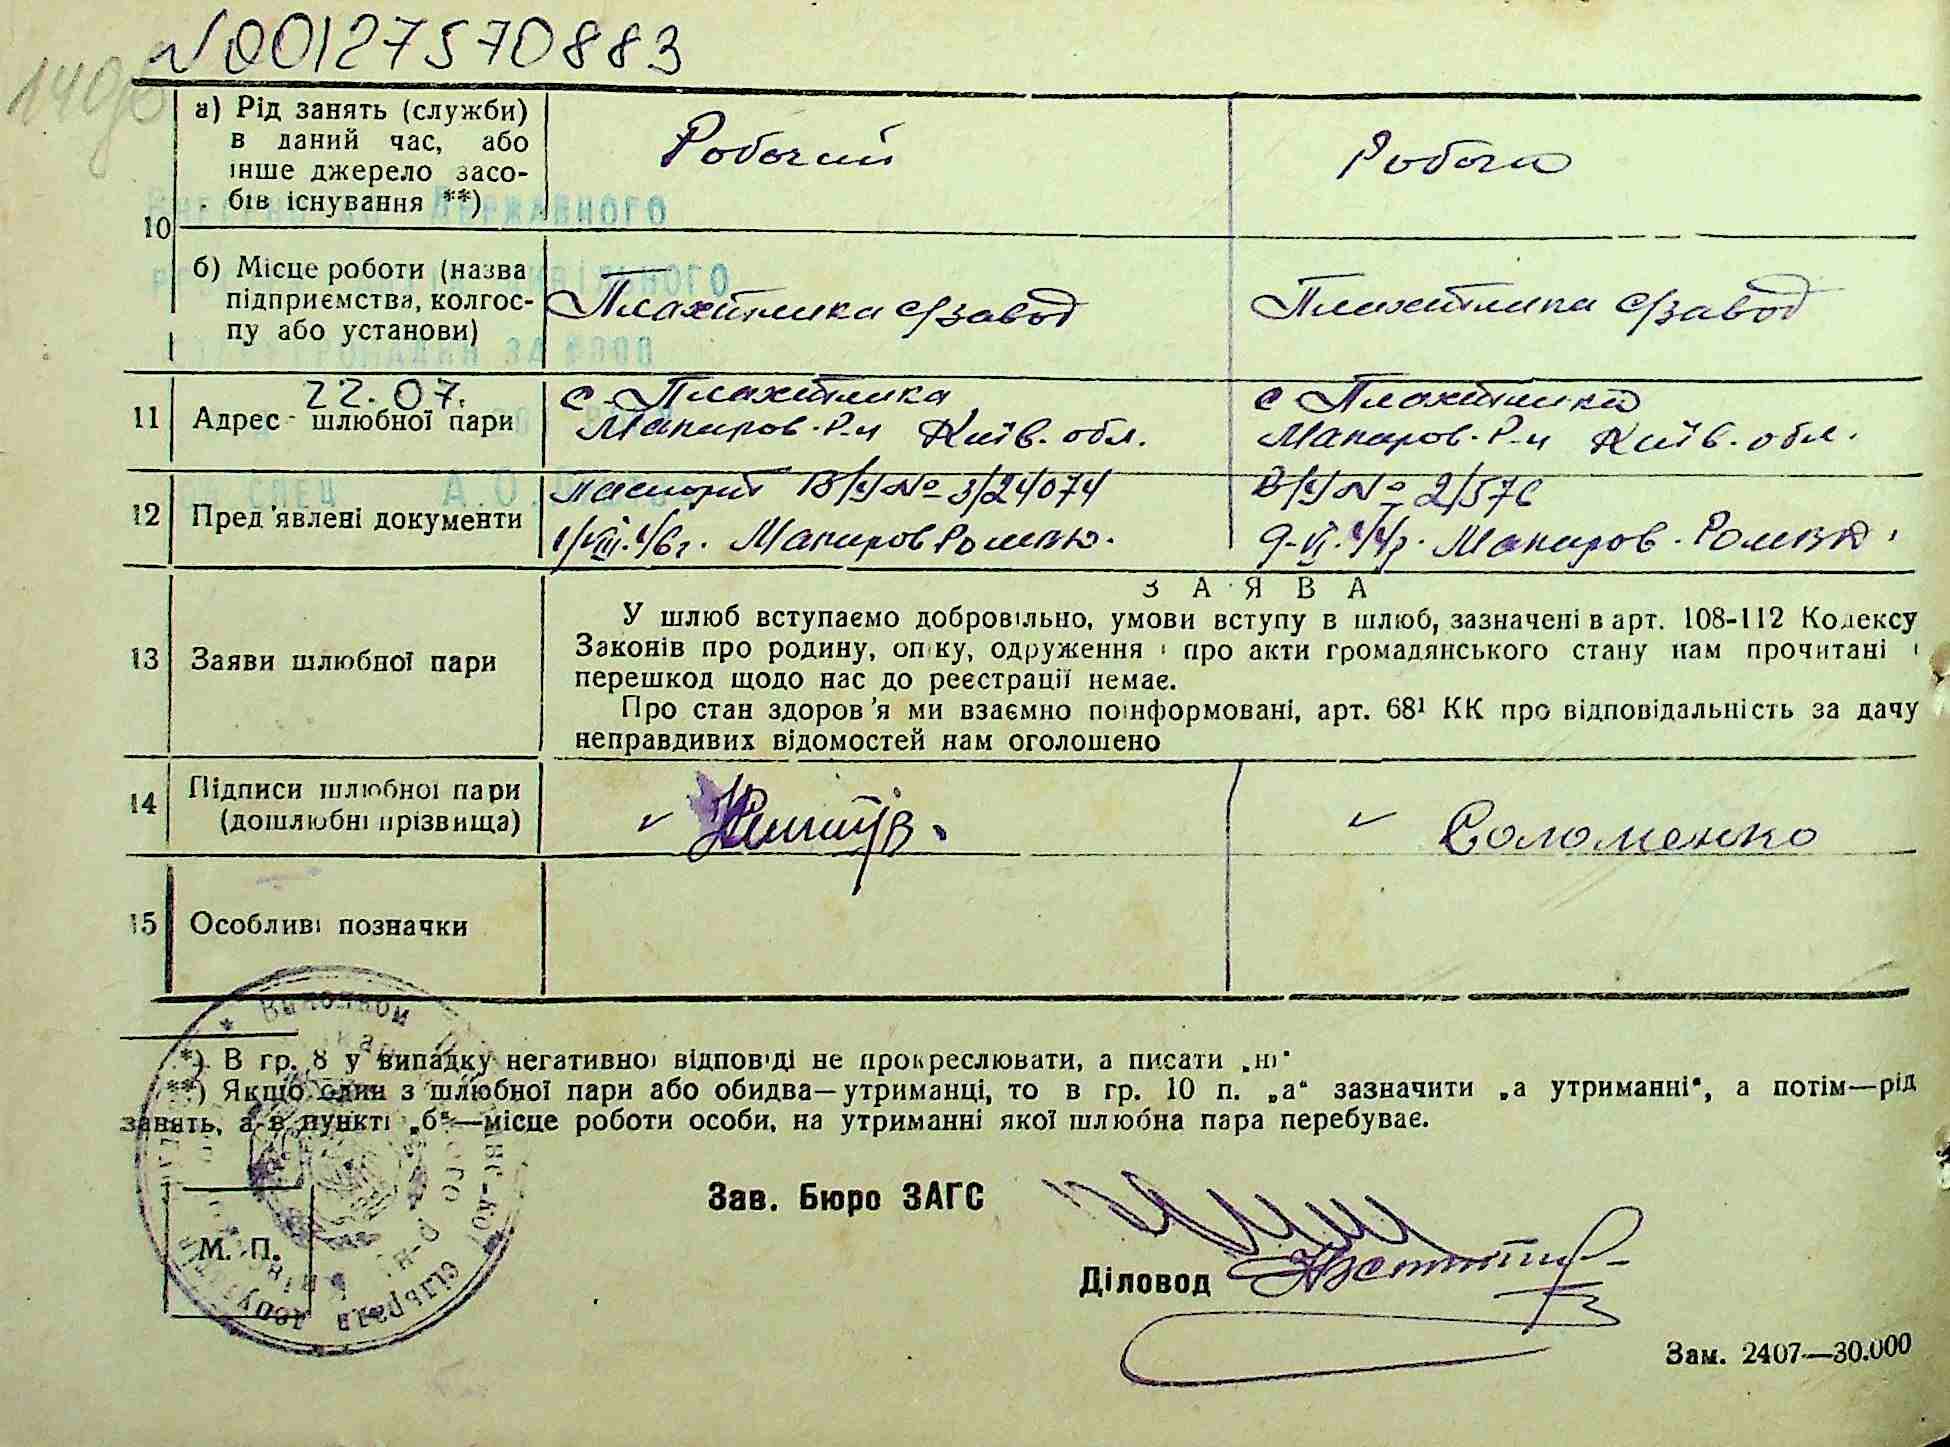 N00127570883
а) Рід занять (служби)
в даний час, або
інше джерело засо-
бів існування **)
Робочий
Робоча
ДЕРЖАВНОГО
10
б) Місце роботи (назва
підприємства, колгос-
пу або установи)
с/завод
с/завод
22.07.
11 Адрес шлюбної пари
с.
Макаров. Р-н Київ. обл.
с.
Макаров. Р-н Київ. обл.
А.О.
12 Пред'явлені документи
Паспорт № 3/24074
№ 2/576
Макаров
Макаров.
З А Я В А
13 Заяви шлюбної пари
У шлюб вступаємо добровільно, умови вступу в шлюб, зазначені в арт. 108-112 Кодексу
Законів про родину, опіку, одруження і про акти громадянського стану нам прочитані і
перешкод щодо нас до реєстрації немає.
Про стан здоров'я ми взаємно поінформовані, арт. 68¹ КК про відповідальність за дачу
неправдивих відомостей нам оголошено
14 Підписи шлюбної пари
(дошлюбні прізвища)
Соломенко
15 Особливі позначки
*) В гр. 8 у випадку негативної відповіді не прокреслювати, а писати „ні"
**) Якщо один з шлюбної пари або обидва—утриманці, то в гр. 10 п. „а" зазначити „а утриманні", а потім—рід
занять, а в пункті „б"—місце роботи особи, на утриманні якої шлюбна пара перебуває.
Зав. Бюро ЗАГС
М. П.
Діловод
Зам. 2407—30.000